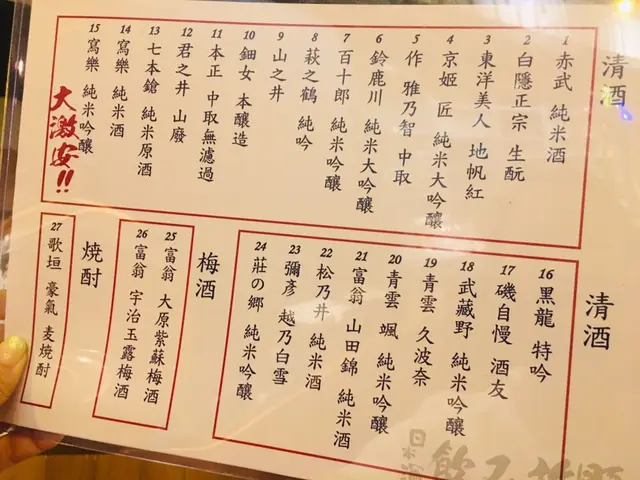 清酒
1 赤武 純米酒
2 白隱正宗 生酛
3 東洋美人 地帆紅
4 京姬 匠 純米大吟釀
5 作 雅乃智 中取
6 鈴鹿川 純米大吟釀
7 百十郎 純米吟釀
8 萩之鶴 純吟
9 山之井
10 鈿女 本釀造
11 本正 中取無濾過
12 君之井 山廢
13 七本鎗 純米原酒
14 寫樂 純米酒
15 寫樂 純米吟釀
大激安!!
清酒
16 黑龍 特吟
17 磯自慢 酒友
18 武藏野 純米吟釀
19 青雲 久波奈
20 青雲 颯 純米吟釀
21 富翁 山田錦 純米酒
22 松乃井 純米酒
23 彌彥 越乃白雪
24 莊の郷 純米吟釀
梅酒
25 富翁 大原紫蘇梅酒
26 富翁 宇治玉露梅酒
燒酎
27 歌垣 豪氣 麦燒酎